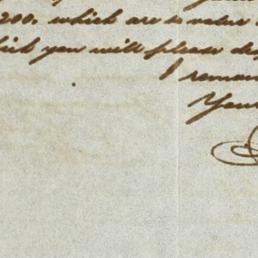 200. which are in value
which you will please de
I remain
Your